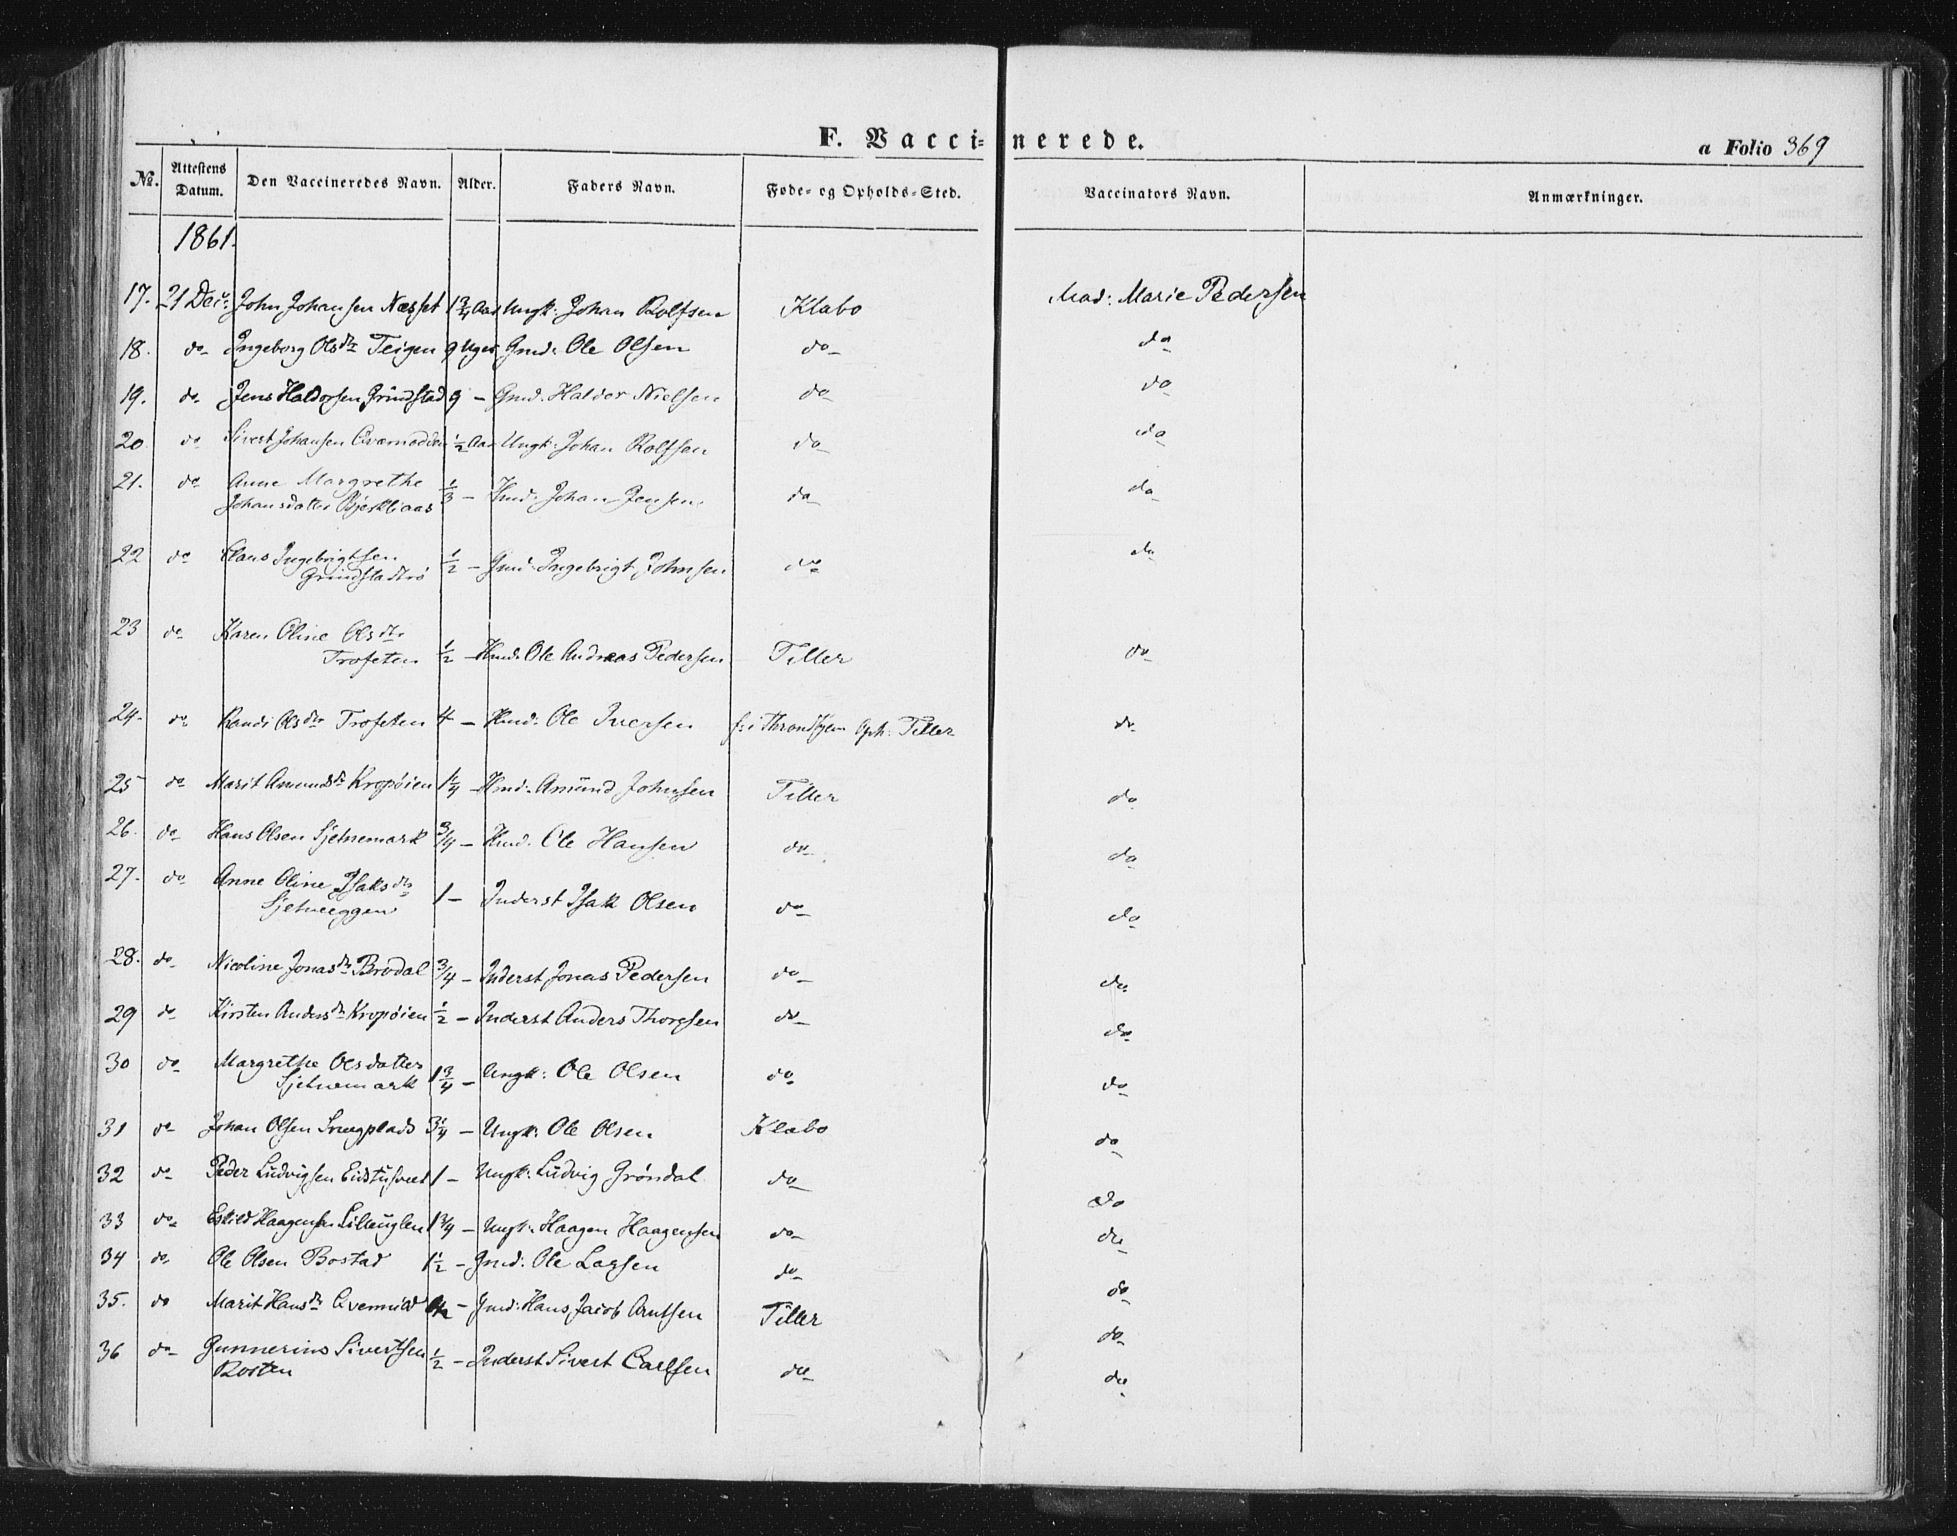 F. Vacci-nerede.
a Folio 369
No. Attestens Datum. Den Vaccineredes Navn. Alder. Faders Navn. Føde- og Opholds-Sted. Vaccinators Navn. Anmærkninger.
1861.
17. 21 Dec: John Johansen Næsset 1 3/4 Aar Ungk: Johan Rolfsen Klabo Mad: Marie Pedersen
18. do Ingeborg Olsdtr Teigen 9 Uger Gmd: Ole Olsen do do
19. do Jens Haldorsen Grindstad 9 - Gmd. Haldor Nielsen do do
20. do Sivert Johansen 1/2 Aar Ungk: Johan Rolfsen do do
21. do Anne Margrethe
Johansdatter 1/3 - Johan Jensen do do
22 do Claus Ingebrigtsen
Grindstadtrø 1/2 - Gmd. Ingebrigt Johnsen do do
23 do Karen Oline Olsdtr
Trofeten 1/2 - Hmd: Ole Andreas Pedersen Tiller do
24. do Randi Olsdtr Trofeten 4 - Hmd: Ole Iversen f: i Throndhjem Oph: Tiller do
25 do Marit Amundsdr Kropøien 1 1/4 - Hmd: Amund Johnsen Tiller do
26. do Hans Olsen Sjetnemark 3/4 - Hmd. Ole Hansen do do
27. do Anne Oline Isaksdtr
Sjetneeggen 1 - Inderst Isak Olsen do do
28. do Nicoline Jonasdtr Brødal 3/4 - Inderst Jonas Pedersen do do
29 do Kirsten Andersdr Kropøien 1/2 - Inderst Anders Thorsen do do
30 do Margrethe Olsdatter
Sjetnemark 1 3/4 - Ungk: Ole Olsen do do
31 do Johan Olsen 3 1/4 - Ungk: Ole Olsen Klabo do
32 do Peder Ludvigsen 1 - Ungk: Ludvig Grøndal do do
33 do Eskild Haagensen Lilleuglen 1 3/4 - Ungk: Haagen Haagensen do do
34 do Ole Olsen Bostad 1 1/2 - Gmd: Ole Larsen do do
35. do Marit Hansdr - Gmd: Hans Jacob Arntsen Tiller do
36 do Gunnerius Sivertsen
Rosten 1/2 - Inderst Sivert Carlsen do do